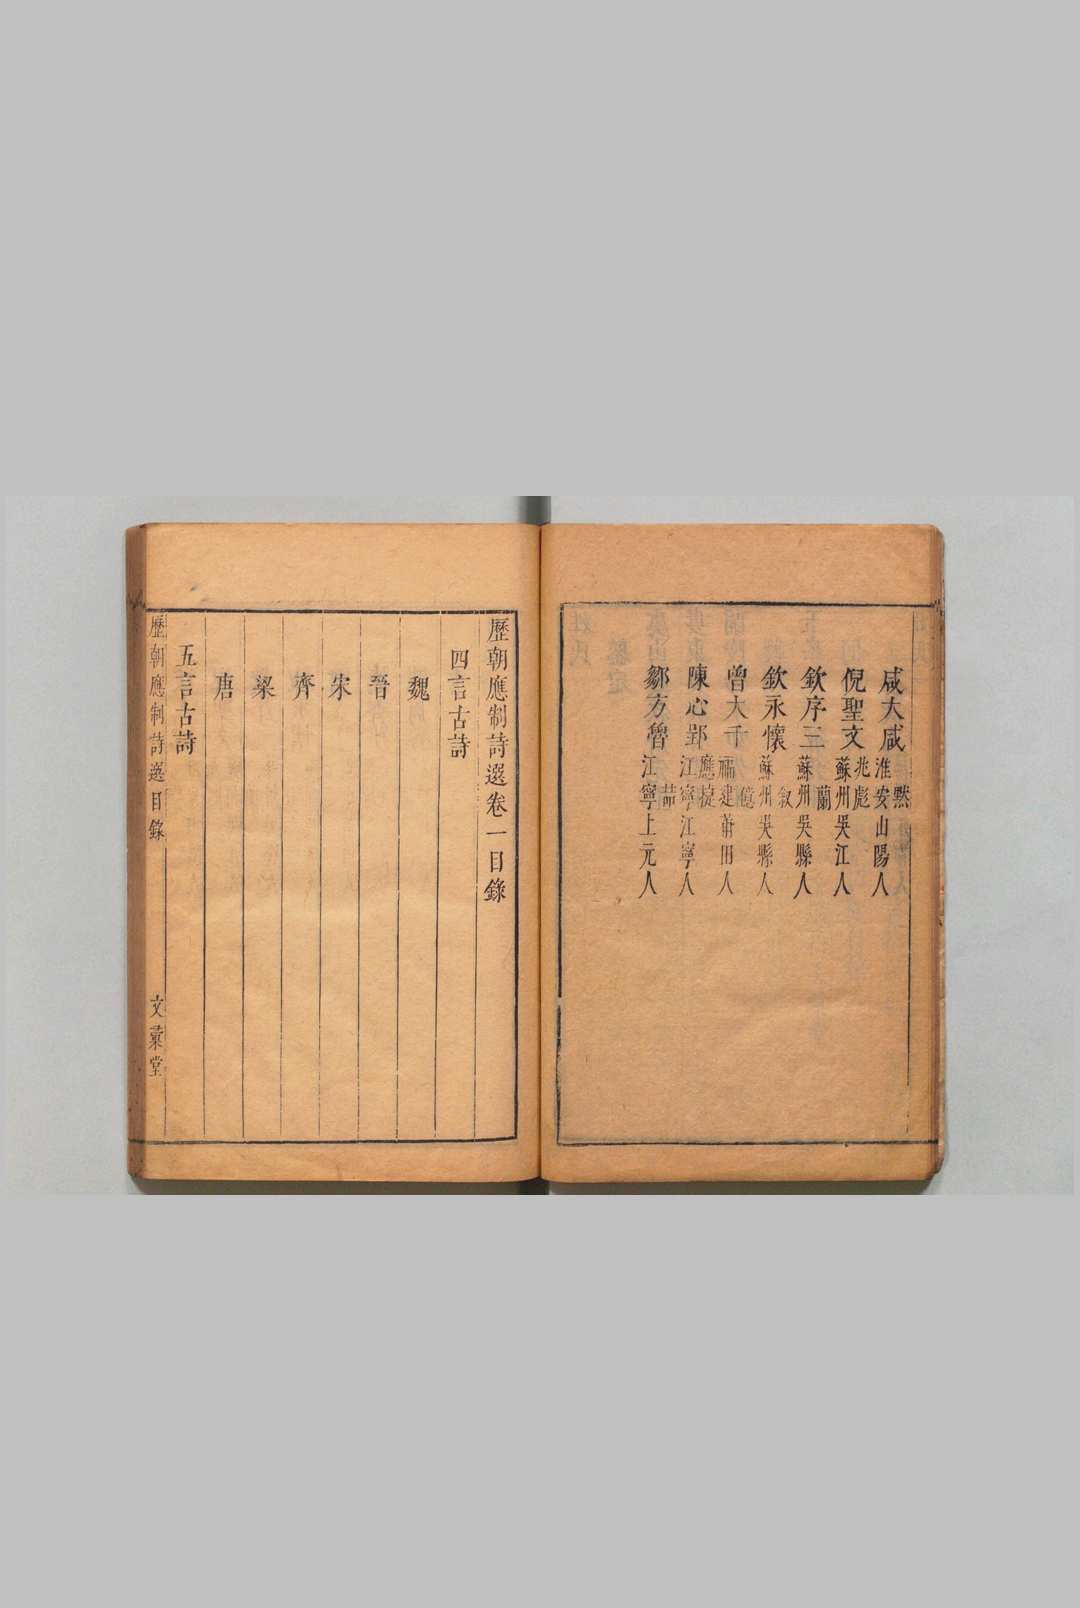 咸大咸
默
淮安山陽人
倪聖文
兆彪
蘇州吳江人
欽序三
蘭
蘇州吳縣人
欽永懷
叙
蘇州吳縣人
曾大千
億
福建莆田人
陳心郢
應掟
江寧江寧人
鄒方魯
喆
江寧上元人
歷朝應制詩選卷一目錄
四言古詩
魏
晉
宋
齊
梁
唐
五言古詩
歷朝應制詩選目錄
文彙堂